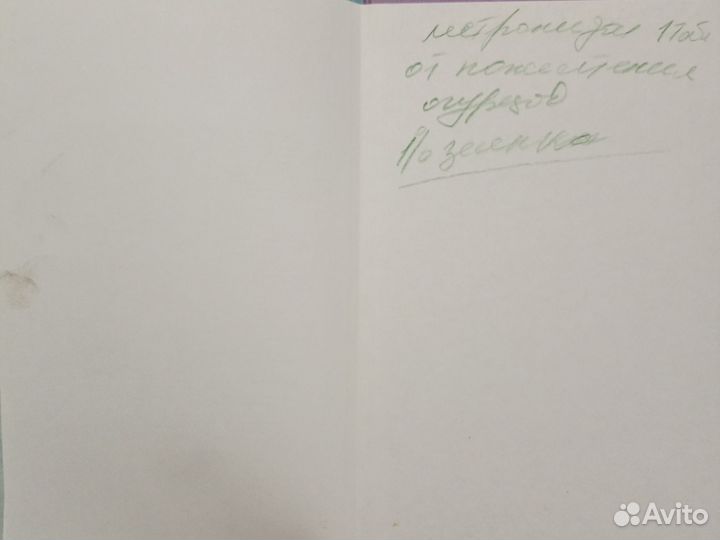 метронидал 1таб
от пожелтения
огурцов
1% зеленка
Avito